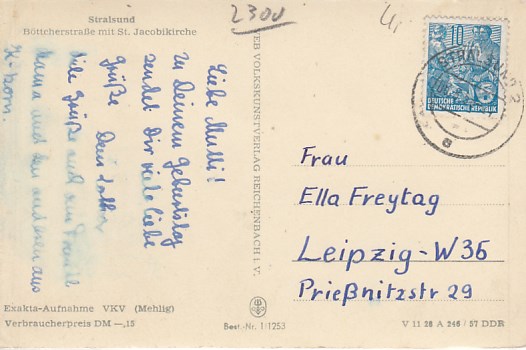 Stralsund
Böttcherstraße mit St. Jacobikirche
2300
Liebe Mutti!
zu Deinem Geburtstag
sendet Dir viele liebe
Grüße Dein Lothar
Viele Grüße auch an
Mama und den anderen aus
VEB VOLKSKUNSTVERLAG REICHENBACH I. V.
10
DEUTSCHE
DEMOKRATISCHE REPUBLIK
STRALSUND 2
Frau
Ella Freytag
Leipzig-W36
Prießnitzstr 29
Exakta-Aufnahme VKV (Mehlig)
Verbraucherpreis DM —,15
Best.-Nr. 1/1253
V 11 28 A 246 / 57 DDR